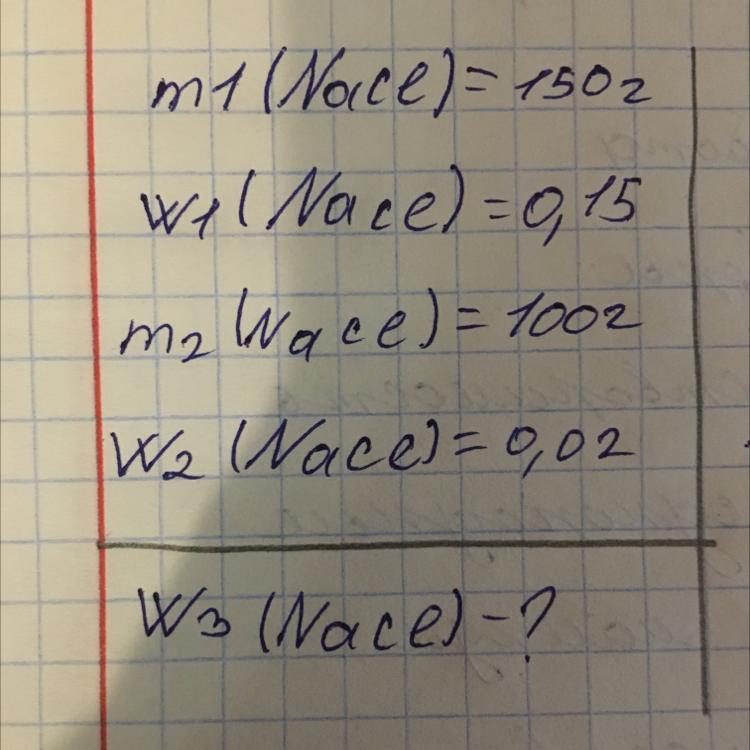 m1(NaCl)=150г
W1(NaCl)=0,15
m2(NaCl)=100г
W2(NaCl)=0,02
W3(NaCl)-?